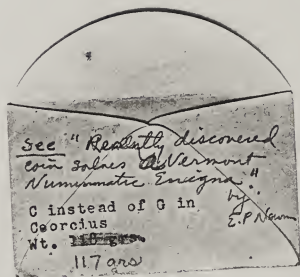 See "Recently discovered
coin solves a Vermont
Numismatic Enigma."
by
E.P. Newman
C instead of G in
Ceorcius
Wt.
117 grs